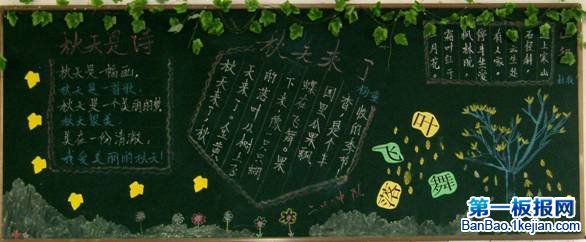 秋天是诗
秋天是一幅画,
秋天是一首歌,
秋天是一个美丽的梦
秋天很美
美在一份清凝,
我爱美丽的秋天!
秋天来了
秋天来了,金黄
的落叶从树上了
下来,像一只只蝴
蝶在飞舞。果
园里瓜果飘
香,是个丰
收的季节
上寒山
石径斜
生处
有人家
停车坐爱
枫林晚
霜叶红于
二月花。
杜牧
叶
飞
舞
落
第一板报网
BanBao.1kejian.com